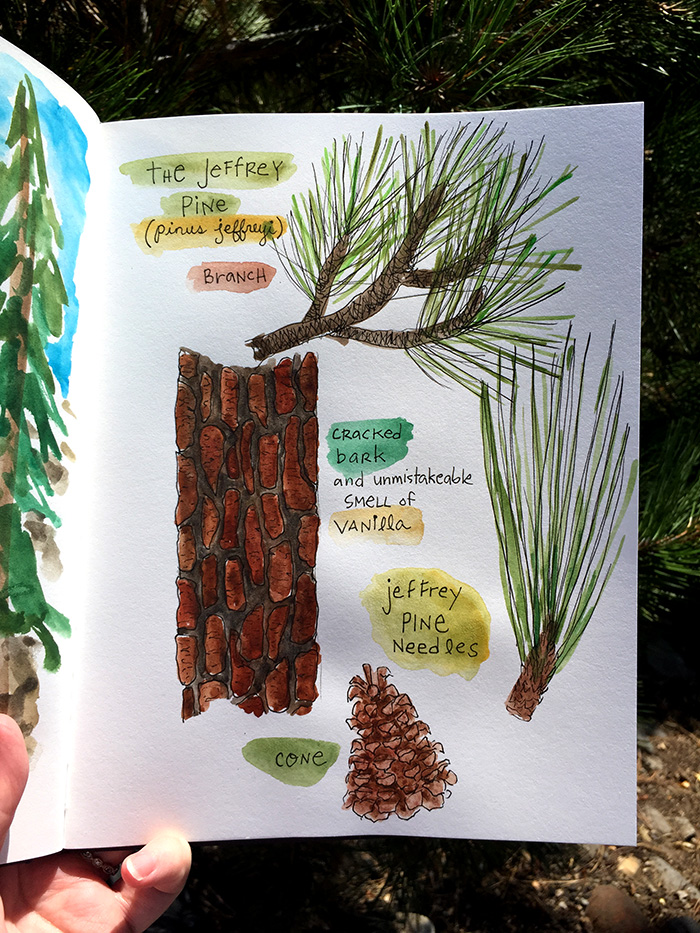 the Jeffrey
Pine
(pinus jeffreyi)
Branch
cracked
bark
and unmistakeable
smell of
Vanilla
jeffrey
Pine
Needles
cone